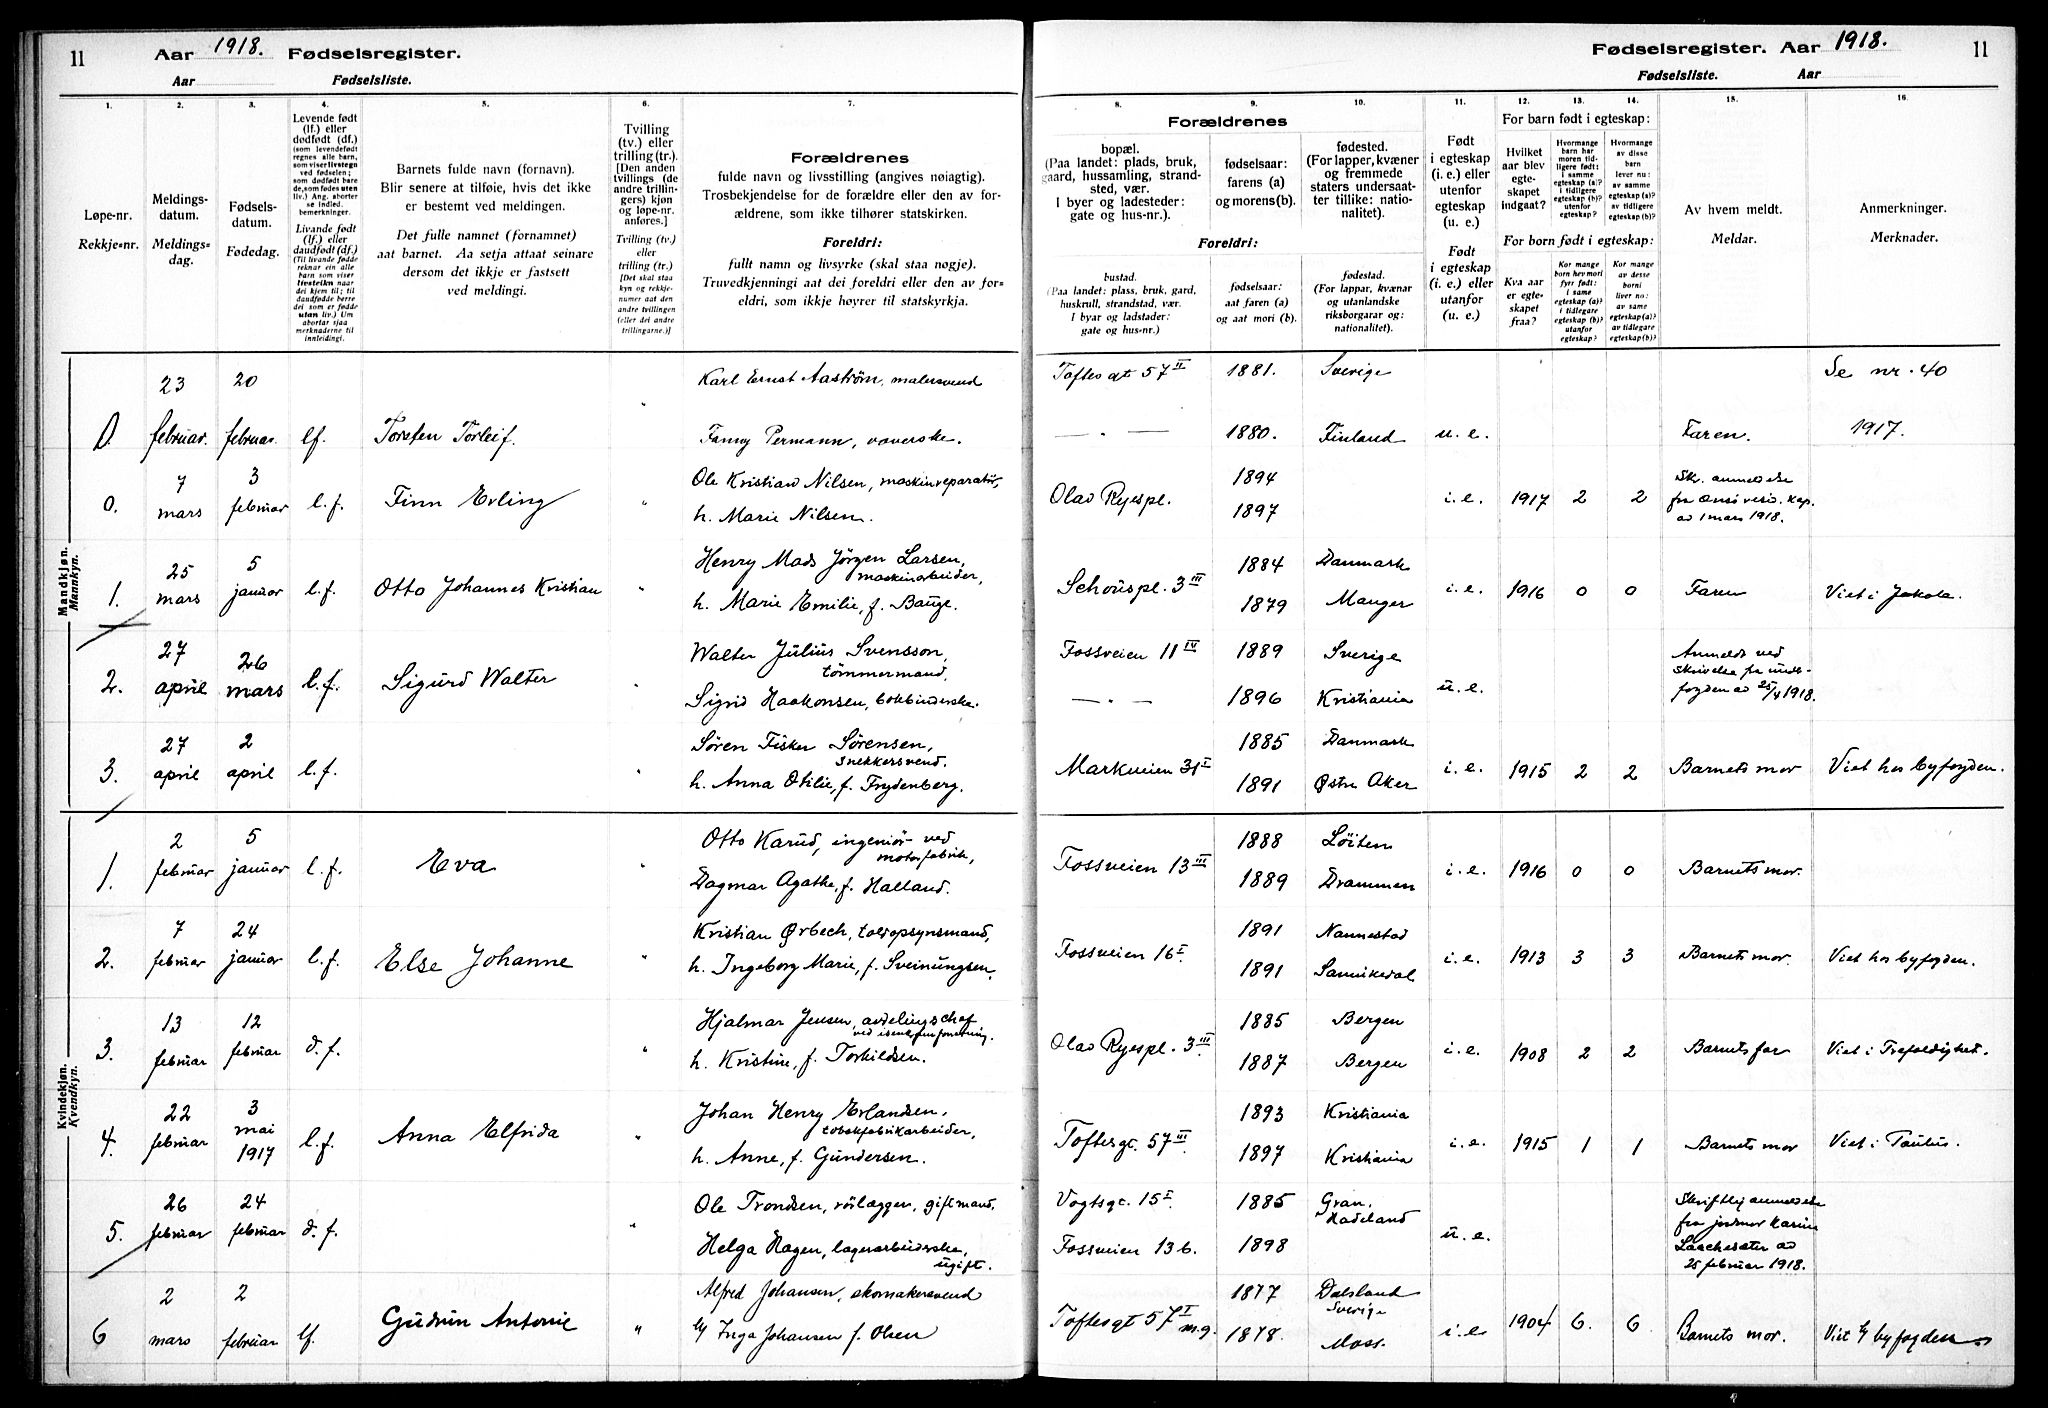 11 Aar 1918. Fødselsregister.
Aar Fødselsliste.
Fødselsregister. Aar 1918. 11
Fødselsliste. Aar
1. 2. 3. 4. 5. 6. 7.
Løpe-nr.
Rekkje-nr.
Meldings-
datum.
Meldings-
dag.
Fødsels-
datum.
Fødedag.
Levende født
(lf.) eller
dødfødt (df.)
(som levendefødt
regnes alle barn,
som viser livstegn
ved fødselen;
som dødfødt bare
de, som fødes uten
liv.) Ang. aborter
se indled.
bemerkninger.
Livande født
(lf.) eller
daudfødt (df.)
(Til livande fødde
reknar ein alle
barn som viser
livsteikn naar
dei kjem til; til
daudfødde berre
dei som er fødde
utan liv.) Um
abortar sjaa
merknaderne til
innleidingi.
Barnets fulde navn (fornavn).
Blir senere at tilføie, hvis det ikke
er bestemt ved meldingen.
Det fulle namnet (fornamnet)
aat barnet. Aa setja attaat seinare
dersom det ikkje er fastsett
ved meldingi.
Tvilling
(tv.) eller
trilling (tr.).
[Den anden
tvillings (de
andre trillin-
gers) kjøn
og løpe-nr.
anføres.]
Tvilling (tv.)
eller
trilling (tr.)
[Det skal staa
kyn og rekkje-
numer aat den
andre tvillingen
(eller dei andre
trillingarne.)]
Forældrenes
fulde navn og livsstilling (angives nøiagtig).
Trosbekjendelse for de forældre eller den av for-
ældrene, som ikke tilhører statskirken.
Foreldri:
fullt namn og livsyrke (skal staa nøgje).
Truvedkjenningi aat dei foreldri eller den av for-
eldri, som ikkje høyrer til statskyrkja.
8. 9. 10. 11. 12. 13. 14. 15. 16.
Forældrenes
bopæl.
(Paa landet: plads, bruk,
gaard, hussamling, strand-
sted, vær.
I byer og ladesteder:
gate og hus-nr.).
fødselsaar:
farens (a)
og morens(b).
fødested.
(For lapper, kvæner
og fremmede
staters undersaat-
ter tillike: natio-
nalitet).
Foreldri:
bustad.
(Paa landet: plass, bruk, gard,
huskrull, strandstad, vær.
I byar og ladstader:
gate og hus-nr.)
fødselsaar:
aat faren (a)
og aat mori (b).
fødestad.
(For lappar, kvænar
og utanlandske
riksborgarar og:
nationalitet).
Født
i egteskap
(i. e.) eller
utenfor
egteskap
(u. e.)
Født
i egteskap
(i. e.) eller
utanfor
(u. e.)
For barn født i egteskap:
Hvilket
aar blev
egte-
skapet
indgaat?
Hvormange
barn har
moren tid-
ligere født:
i samme
egteskap (a)?
i tidligere
egteskap (b)?
utenfor
egteskap?
Hvormange
av disse
barn
lever nu:
av samme
egteskap (a)?
av tidligere
egteskap (b)?
For born født i egteskap:
Kva aar
er egte-
skapet
fraa?
Kor mange
born hev mori
fyrr født:
i same
egteskap (a)?
i tidlegare
egteskap (b)?
utanfor
egteskap?
Kor mange
av desse
borni
liver no:
av same
egteskap (a)?
av tidlegare
egteskap (b)?
Av hvem meldt.
Meldar.
Anmerkninger.
Merknader.
Mandkjøn.
Mannkyn.
23 20 Karl Ernst Aaström, malersvend Toftes gt 57 II 1881. Sverige Se nr. 40
0. februar. februar. lf. Torsten Torleif. " Fanny Permann, væverske. — " — 1880. Finland u. e. Faren. 1917.
7 3 Ole Kristian Nilsen, maskinreparatør, 1894 Skr. anmeldelse
0. mars februar l. f. Finn Erling " h. Marie Nilsen. Olav Ryespl. 1897 i. e. 1917 2 2 fra Onsø resid. kap.
av 1 mars 1918.
25 5 Henry Mads Jörgen Larsen, 1884 Danmark
maskinarbeider,
1. mars januar l. f. Otto Johannes Kristian " h. Marie Emilie, f. Bauge. Schouspl. 3 III 1879 Manger i. e. 1916 0 0 Faren Viet i Jakobs.
27 26 Walter Julius Svensson, Fossveien 11 IV 1889 Sverige Anmeldt ved
tömmermand,
2. april mars l. f. Sigurd Walter Sigrid Haakonsen, bokbinderske. — " — 1896 Kristiania u. e. skrivelse fra under-
fogden av 25/4 1918.
27 2 Søren Fisker Sørensen, 1885 Danmark
snekkersvend.
3. april april l. f. " h. Anna Otilie, f. Frydenberg. Markveien 31 I 1891 Østre Aker i. e. 1915 2 2 Barnets mor Viet hos byfogden.
Kvindekjøn.
Kvendkyn.
2 5 Otto Karud, ingeniør ved 1888 Löiten
motorfabrik,
1. februar januar l. f. Eva " Dagmar Agathe, f. Halland. Fossveien 13 III 1889 Drammen i. e. 1916 0 0 Barnets mor.
7 24 Kristian Ørbech, toldopsynsmand, 1891 Nannestad
2. februar januar l. f. Else Johanne " h. Ingeborg Marie, f. Sveinungsen. Fossveien 16 I 1891 Sannikedal i. e. 1913 3 3 Barnets mor. Viet hos byfogden.
13 12 Hjalmar Jensen, avdelingschef 1885 Bergen
ved isenkramforretning.
3. februar februar d. f. " h. Kristine, f. Torkildsen. Olav Ryespl. 3 III 1887 Bergen i. e. 1908 2 2 Barnets far Viet i Trefoldighet.
22 3 Johan Henry Erlandsen, 1893 Kristiania
tobakfabrikarbeider,
4. februar mai 1917 l. f. Anna Elfrida " h. Anne, f. Gundersen. Toftesgt. 57 III 1897 Kristiania i. e. 1915 1 1 Barnets mor Viet i Paulus.
26 24 Ole Trondsen, rörlægger, gift mand. Vogtsgt. 15 I 1885 Gran, Hadeland Skriftlig anmeldelse
5. februar februar d. f. " Helga Hagen, lagerarbeiderske, ugift. Fossveien 13 b. 1898 u. e. fra jordmor Karine
av
25 februar 1918.
2 2 Alfred Johansen, skomakersvend 1877 Dalsland Sverige
6 mars februar lf. Gudrun Antonie " h/ Inga Johansen f. Olsen Toftesgt 57 I m.g. 1878. Moss. i. e 1904 6. 6. Barnets mor. Viet b/ byfogden